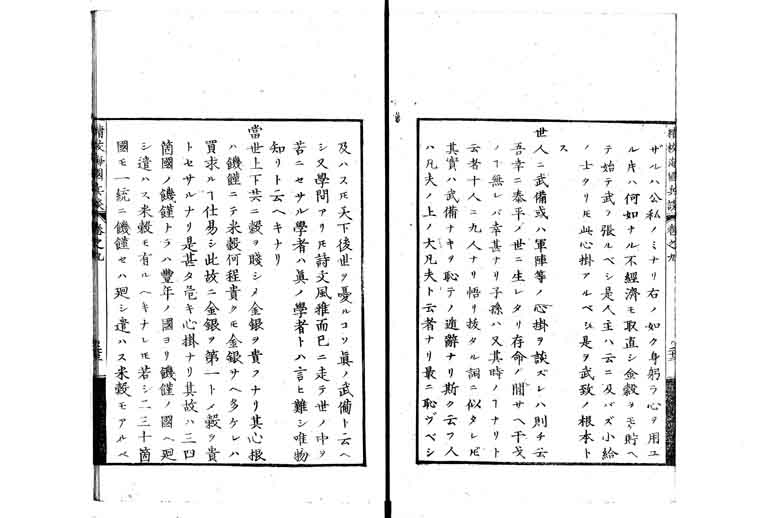 精校海國兵談 卷之九
ザルハ公私ノミナリ右ノ如ク身躬ラ心ヲ用ユ
ル片ハ何如ナル不經濟モ取直シ金穀ヲモ時ヘ
テ始テ武ヲ張ルベシ是人主ハ云ニ及バズ小給
ノ士タリ𪜈此心掛アルベシ是ヲ武致ノ根本ト
ス
世人ニ武備或ハ軍陣等ノ心掛ヲ談ズレハ則チ云
吾幸ニ泰平ノ世ニ生レタリ存命ノ間サヘ干戈
ノ㕝無レバ幸甚ナリ子孫ハ又其時ノ㕝ナリト
云者十人ニ九人ナリ悟リ抜タル詞ニ似タレ𪜈
其實ハ武備ナキヲ恥テノ遁辭ナリ斯ク云フ人
ハ凡夫ノ上ノ大凡夫ト云者ナリ最ニ恥ヅベシ
及ハス𪜈天下後世ヲ憂ルコソ眞ノ武備ト云ヘ
シ又學問アリ𪜈詩文風雅而巳ニ走テ世ノ中ヲ
苦ニセサル學者ハ眞ノ學者トハ言ヒ難シ唯物
知リト云ヘキナリ
當世上下共ニ穀ヲ賤シメ金銀ヲ貴フナリ其心根
ハ饑饉ニテ米穀何程貴クモ金銀サヘ多ケレハ
買求ル㕝仕易シ此故ニ金銀ヲ第一トノ穀ヲ貴
トセサルナリ是甚タ危キ心掛ナリ其故ハ三四
箇國ノ饑饉トラハ豐年ノ國ヨリ饑饉ノ國ヘ廻
シ遣ハス米穀モ有ルヘキナレ𪜈若シ二三十箇
國モ一統ニ饑饉セハ廻シ遣ハス米穀モアルベ
精校海國兵談 卷之九